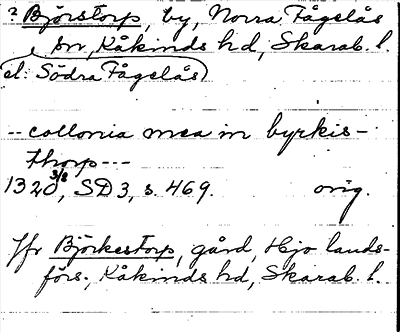 ? Björstorp, by, Norra Fågelås
sn, Kåkinds hd, Skarab. l.
el. Södra Fågelås
-- collonia mea in byrkis-
thorp ---
1320 3/8, SD 3, s. 469. orig.
Jfr Björkestorp, gård, Hjo lands-
förs., Kåkinds hd, Skarab. l.